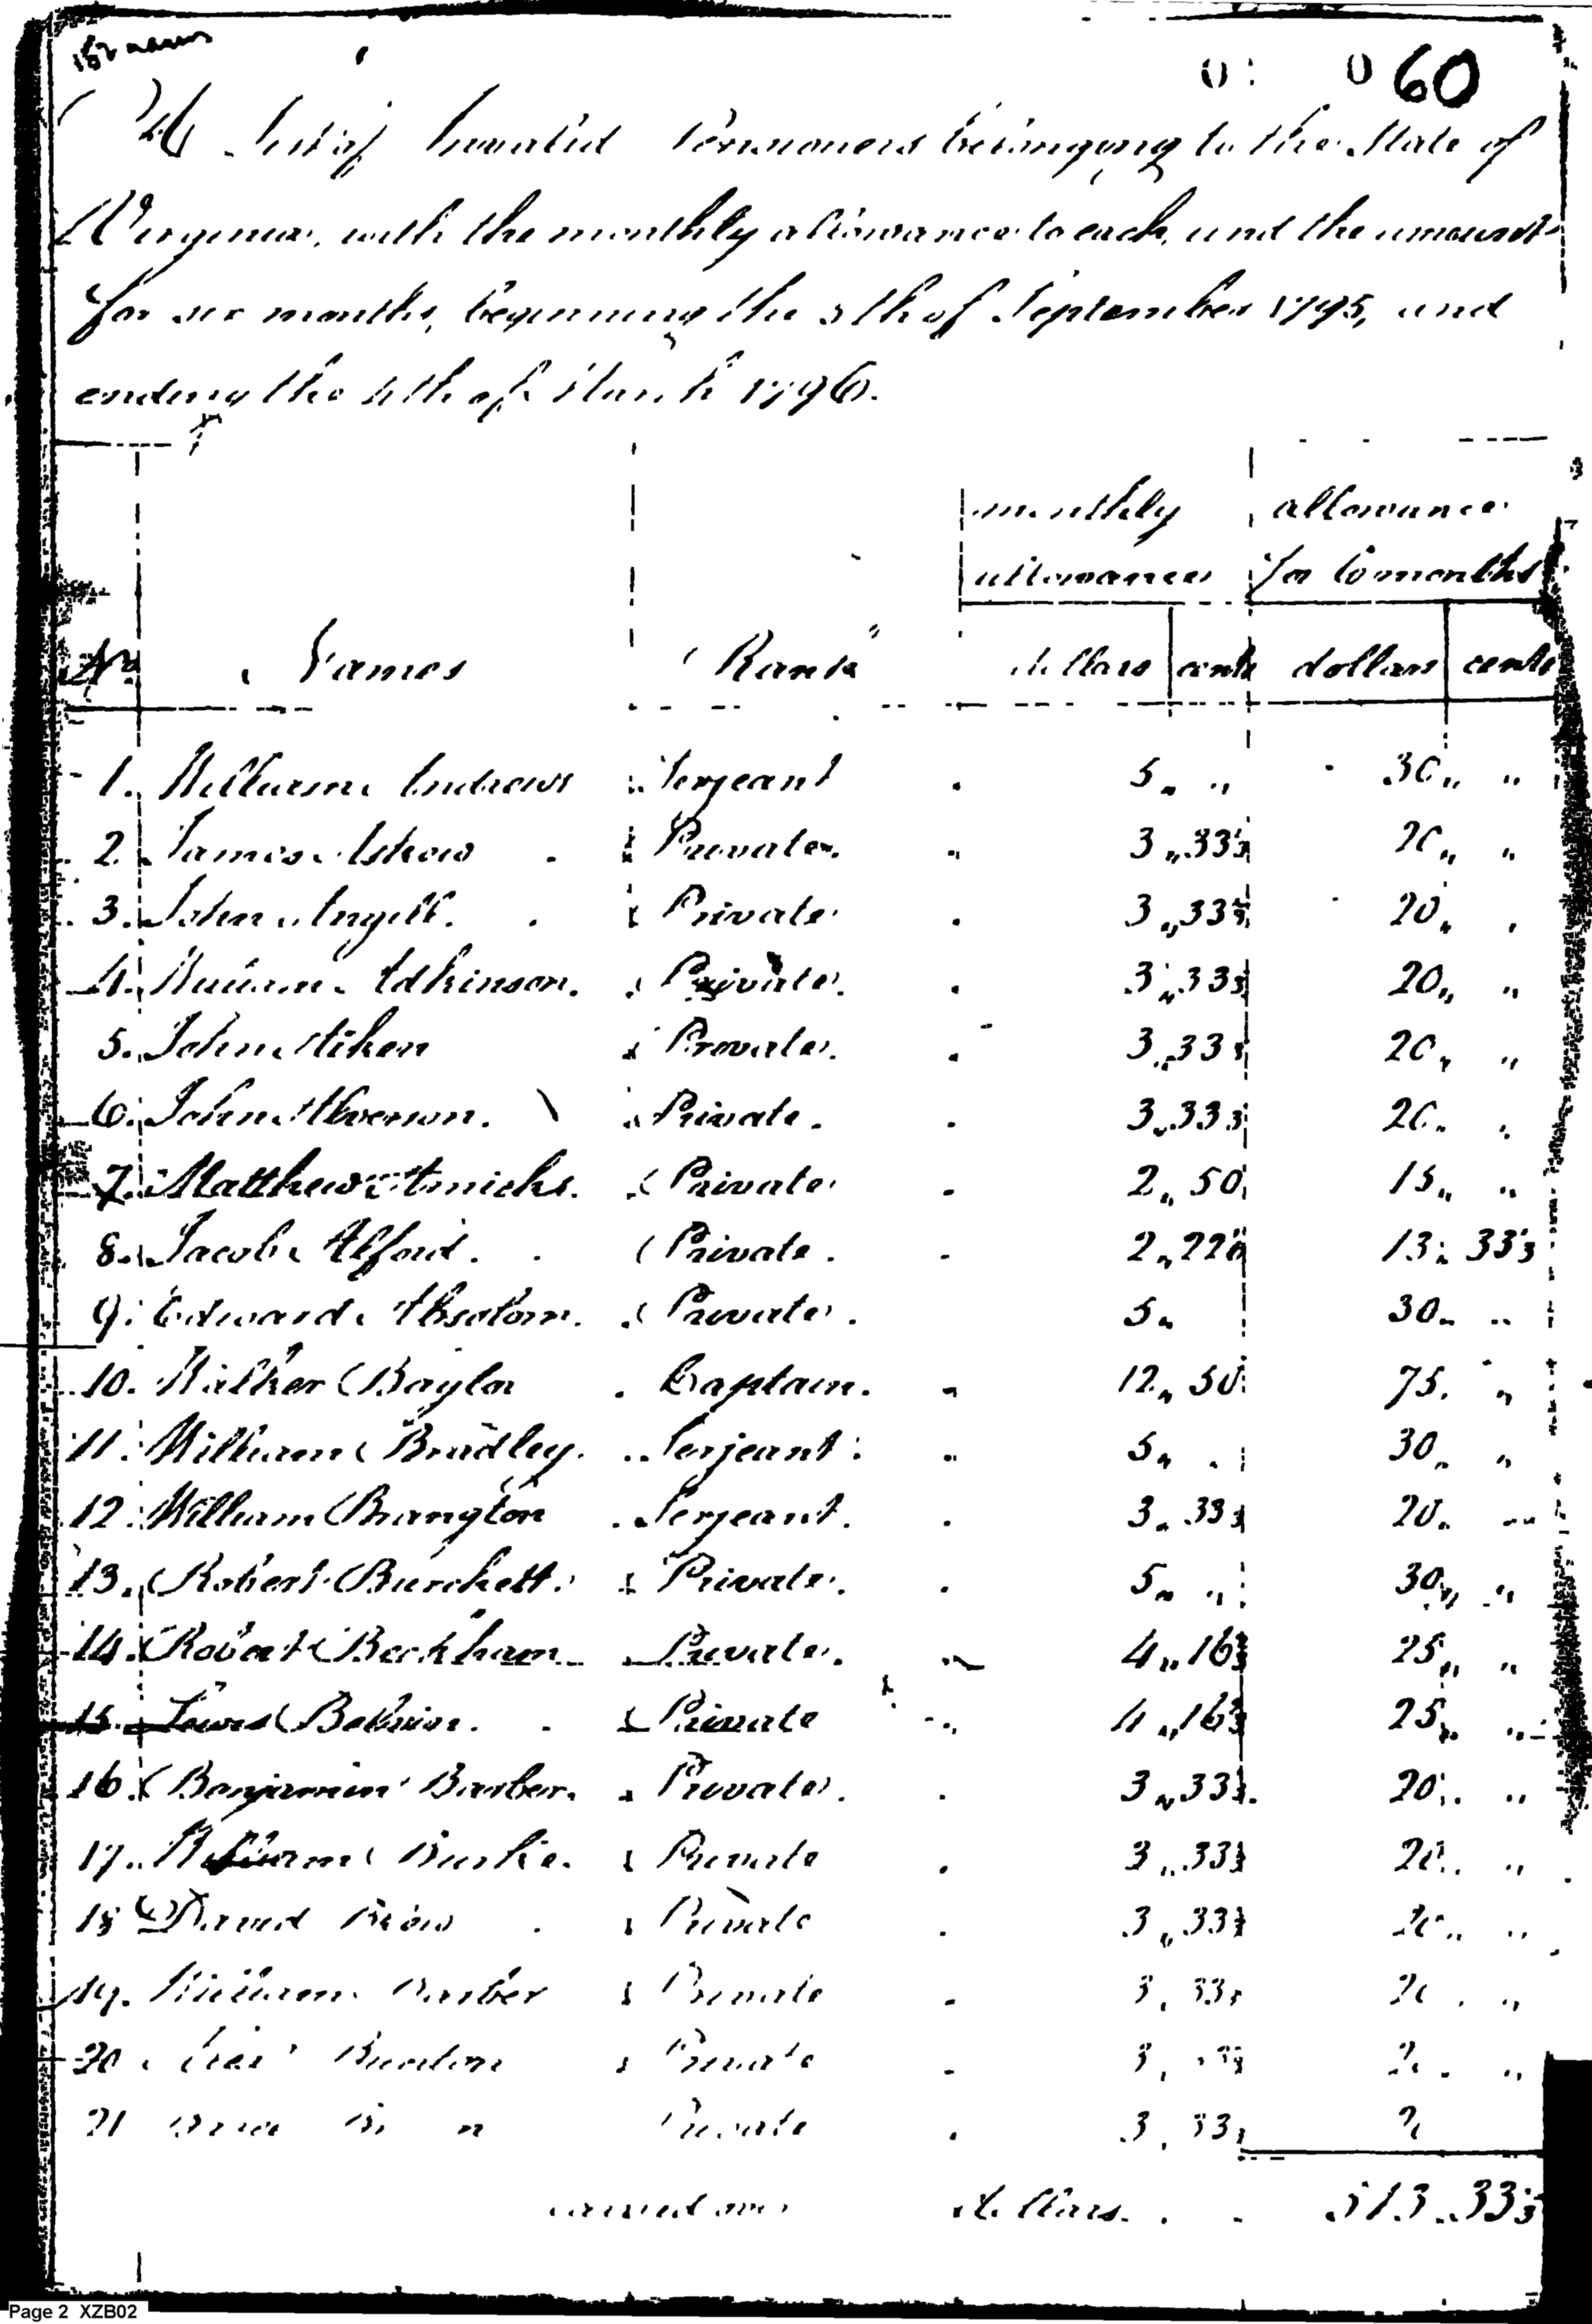 182 names
60
A List of Invalid Pensioners belonging to the State of
Virginia, with the monthly allowance to each, and the amount
for six months, beginning the 5th of September 1795, and
ending the 4th of March 1796.
monthly allowance
allowance for 6 months
No. Names Rank dollars cents dollars cents
1. William Andrews Serjeant 5 „ „ 30 „ „
2. James Askew Private 3 „ 33⅓ 20 „ „
3. John Angell. Private 3 „ 33⅓ 20 „ „
4. William Adkinson. Private. 3 „ 33⅓ 20 „ „
5. John Aiken Private. 3 „ 33⅓ 20 „ „
6. John Alverson. Private. 3 „ 33⅓ 20 „ „
7. Matthew Amicks. Private 2 „ 50 15 „ „
8. Jacob Alford. Private. 2 „ 22 13 „ 33⅓
9. Edward Absolom. Private. 5 „ 30 „ „
10. Walker Baylor Captain. 12 „ 50 75 „
11. William Bradley. Serjeant. 5 „ 30 „ „
12. William Brangton Serjeant. 3 „ 33⅓ 20 „
13. Robert Burchett. Private. 5 „ „ 30 „ „
14. Robert Beckham Private. 4 „ 16⅔ 25 „ „
15. Lewis Private 4 „ 16⅔ 25 „ „
16. Benjamin Barber. Private. 3 „ 33⅓ 20 „ „
17. William Burke. Private 3 „ 33⅓ 20 „ „
18 David Private 3 „ 33⅓ 20 „ „
19. William Barber Private 3 „ 33⅓ 20 „ „
20 Burton Private 3 „ 33⅓ 20 „ „
21 Private 3 „ 33⅓ 20
carried over dollars. 513 „ 33⅓
Page 2 XZB02